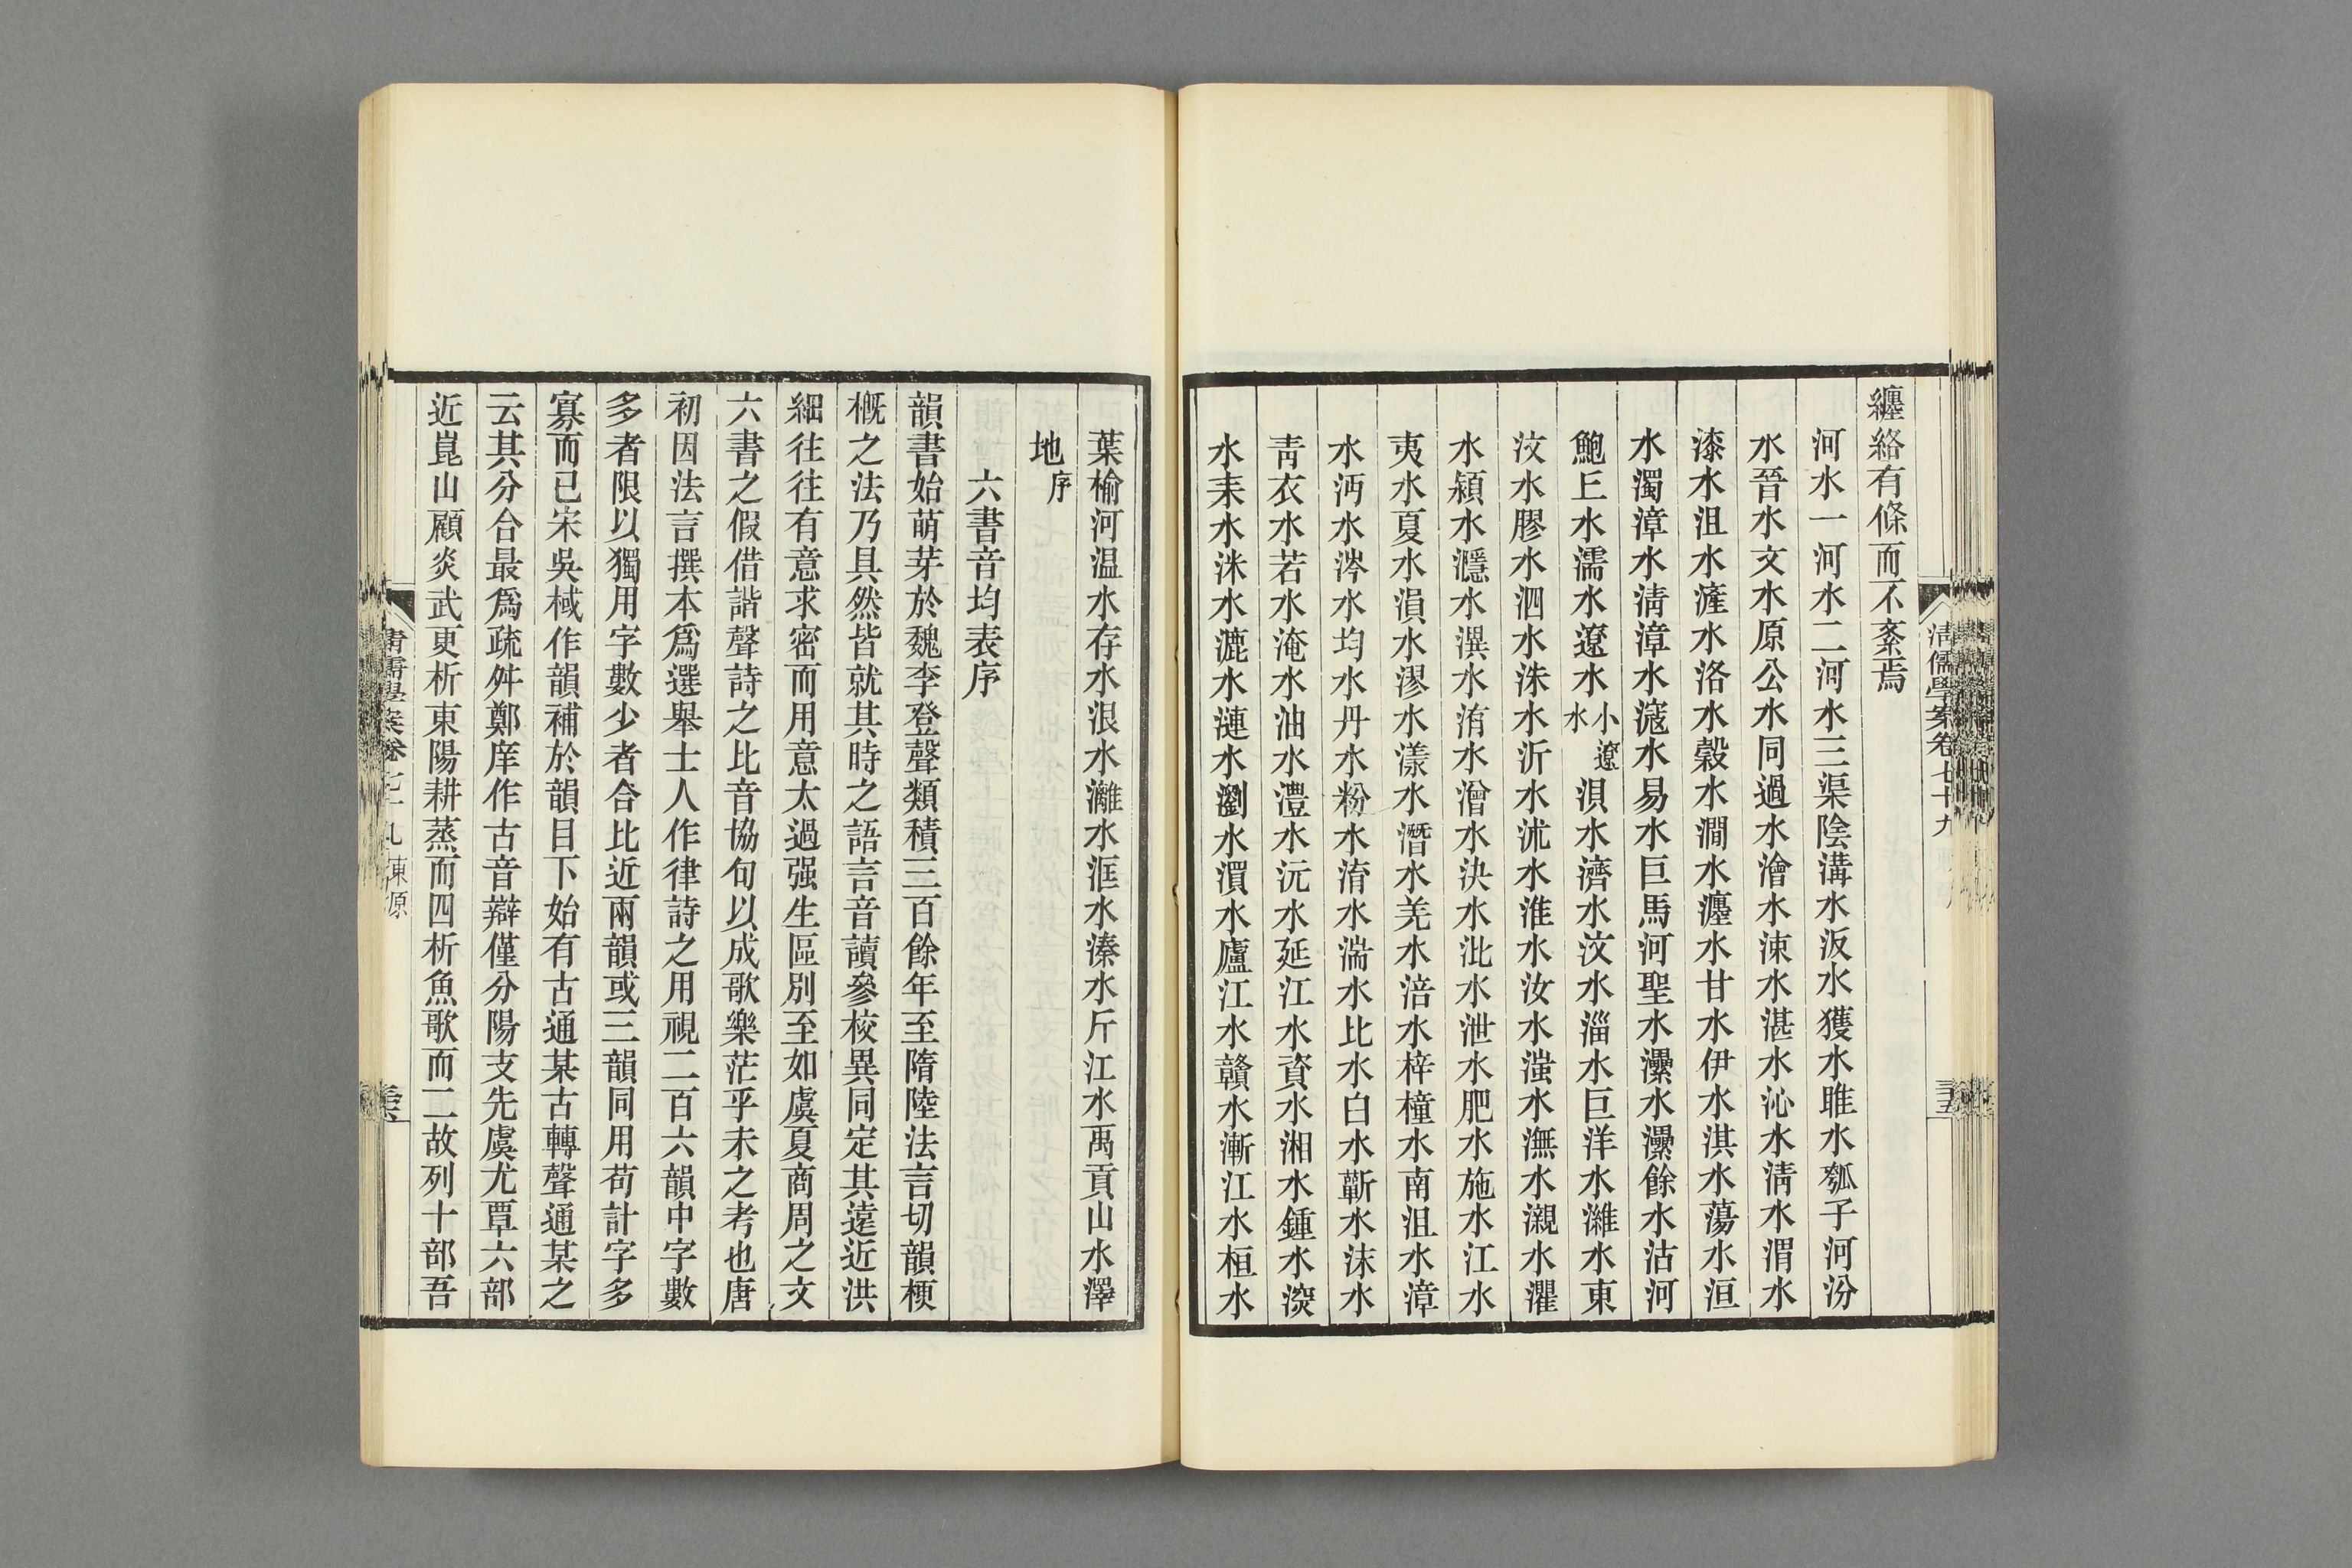 清儒學案卷七十九
纏絡有條而不紊焉
河水一河水二河水三渠陰溝水汳水獲水睢水瓠子河汾
水晉水文水原公水同過水澮水涑水湛水沁水清水渭水
漆水沮水滻水洛水穀水澗水瀍水甘水伊水淇水蕩水洹
水濁漳水清漳水滱水易水巨馬河聖水㶟水㶟餘水沽河
鮑丘水濡水遼水小遼水浿水濟水汶水淄水巨洋水濰水東
汶水膠水泗水洙水沂水沭水淮水汝水滍水潕水瀙水灈
水潁水濦水潩水洧水潧水決水沘水泄水肥水施水江水
夷水夏水溳水漻水漾水潛水羌水涪水梓橦水南沮水漳
水沔水涔水均水丹水粉水淯水湍水比水白水蘄水沫水
青衣水若水淹水油水澧水沅水延江水資水湘水鍾水㴩
水耒水洣水漉水漣水瀏水溳水廬江水贛水漸江水桓水
葉榆河溫水存水浪水灕水洭水溱水斤江水禹貢山水澤
地序
六書音均表序
韻書始萌芽於魏李登聲類積三百餘年至隋陸法言切韻梗
概之法乃具然皆就其時之語言音讀參校異同定其遠近洪
細往往有意求密而用意太過强生區別至如虞夏商周之文
六書之假借諧聲詩之比音協句以成歌樂茫乎未之考也唐
初因法言撰本爲選舉士人作律詩之用視二百六韻中字數
多者限以獨用字數少者合比近兩韻或三韻同用苟計字多
寡而已宋吳棫作韻補於韻目下始有古通某古轉聲通某之
云其分合最爲疏舛鄭庠作古音辯僅分陽支先虞尤覃六部
近崑山顧炎武更析東陽耕蒸而四析魚歌而二故列十部吾
清儒學案卷七十九 東原